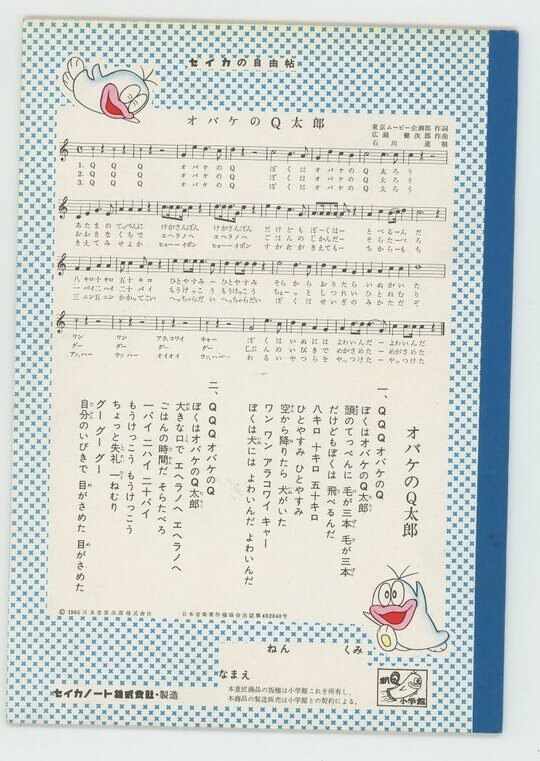 セイカの自由帖
オバケのQ太郎
東京ムービー企画部 作詞
広瀬健次郎 作曲
石川進 唄
1. Q Q Q オバケの Q ぼくは オバケの Q 太ろう
2. Q Q Q オバケの Q ぼくは オバケの Q 太ろう
3. Q Q Q オバケの Q ぼくは オバケの Q 太ろう
あたまのてっぺんに けがさんぼん けがさんぼん だけどもぼくは とべるんだ
おおきなくちで エヘラノヘ エヘラノヘ ごはんのじかんだ そらたべろ
きえてみせよか ヒョーイポン ヒョーイポン すがたがきえても ちからもち
八キロ十キロ五十キロ ひとやすみー ひとやすみ そらからおりたら いぬがいた
一パイ二ハイ二十パイ もうけっこう もうけっこう ちょっとしつれい ひとねむり
三ニン五ニンかかってこい へっちゃらだい へっちゃらだい ぼくはせいぎの みかただ
ワン ワン アラ、コワイ キャー ぼくはいぬには よわいんだー よわいんだ
グー グー グー グー じぶんのいびきで めがさめたー めがさめた
アッ、ハー ウッ ハー オイオイ ウッ、ハー わるいやつらを やっつけた
オバケのQ太郎
一、QQQ オバケのQ
ぼくはオバケのQ太郎
頭のてっぺんに 毛が三本 毛が三本
だけどもぼくは 飛べるんだ
八キロ 十キロ 五十キロ
ひとやすみ ひとやすみ
空から降りたら 犬がいた
ワン ワン アラコワイ キャー
ぼくは犬には よわいんだ よわいんだ
二、QQQ オバケのQ
ぼくはオバケのQ太郎
大きな口で エヘラノヘ エヘラノヘ
ごはんの時間だ そらたべろ
一パイ 二ハイ 二十パイ
もうけっこう もうけっこう
ちょっと失礼 一ねむり
グー グー グー
自分のいびきで 目がさめた 目がさめた
© 1965 日本音楽出版株式会社 日本音楽著作権協会出認番402040号
ねん くみ
なまえ
セイカノート株式会社・製造
本意匠商品の版権は小学館これを所有し、
本商品の製造販売は小学館との契約による。
小学館